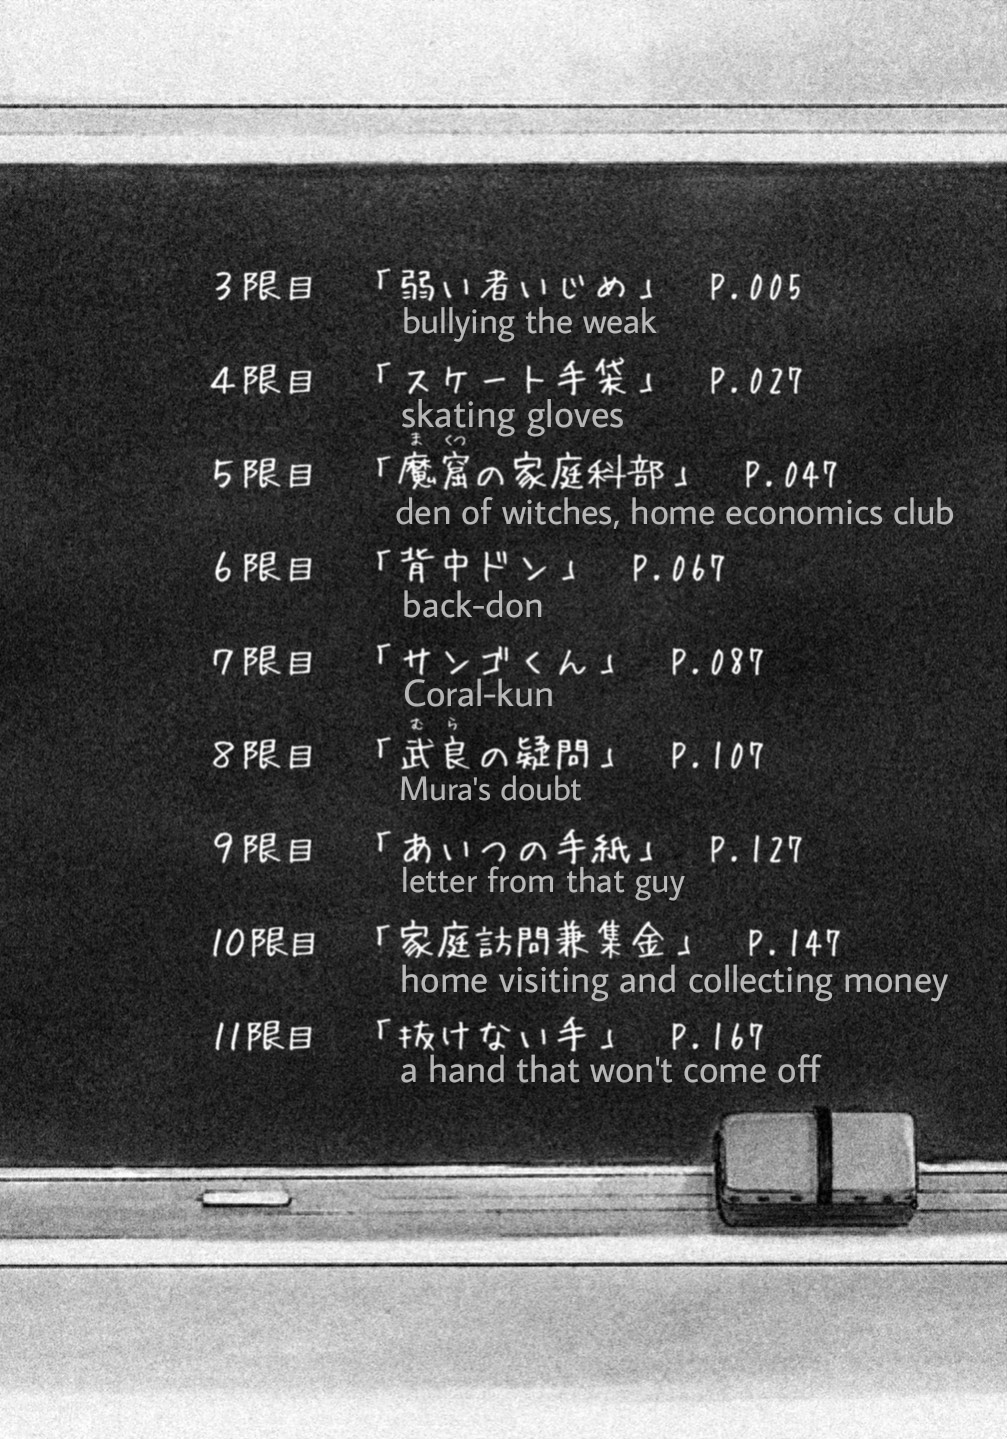 3限目 「弱い者いじめ」 P.005
bullying the weak
4限目 「スケート手袋」 P.027
skating gloves
まくつ
5限目 「魔窟の家庭科部」 P.047
den of witches, home economics club
6限目 「背中ドン」 P.067
back-don
7限目 「サンゴくん」 P.087
Coral-kun
むら
8限目 「武良の疑問」 P.107
Mura's doubt
9限目 「あいつの手紙」 P.127
letter from that guy
10限目 「家庭訪問兼集金」 P.147
home visiting and collecting money
11限目 「抜けない手」 P.167
a hand that won't come off